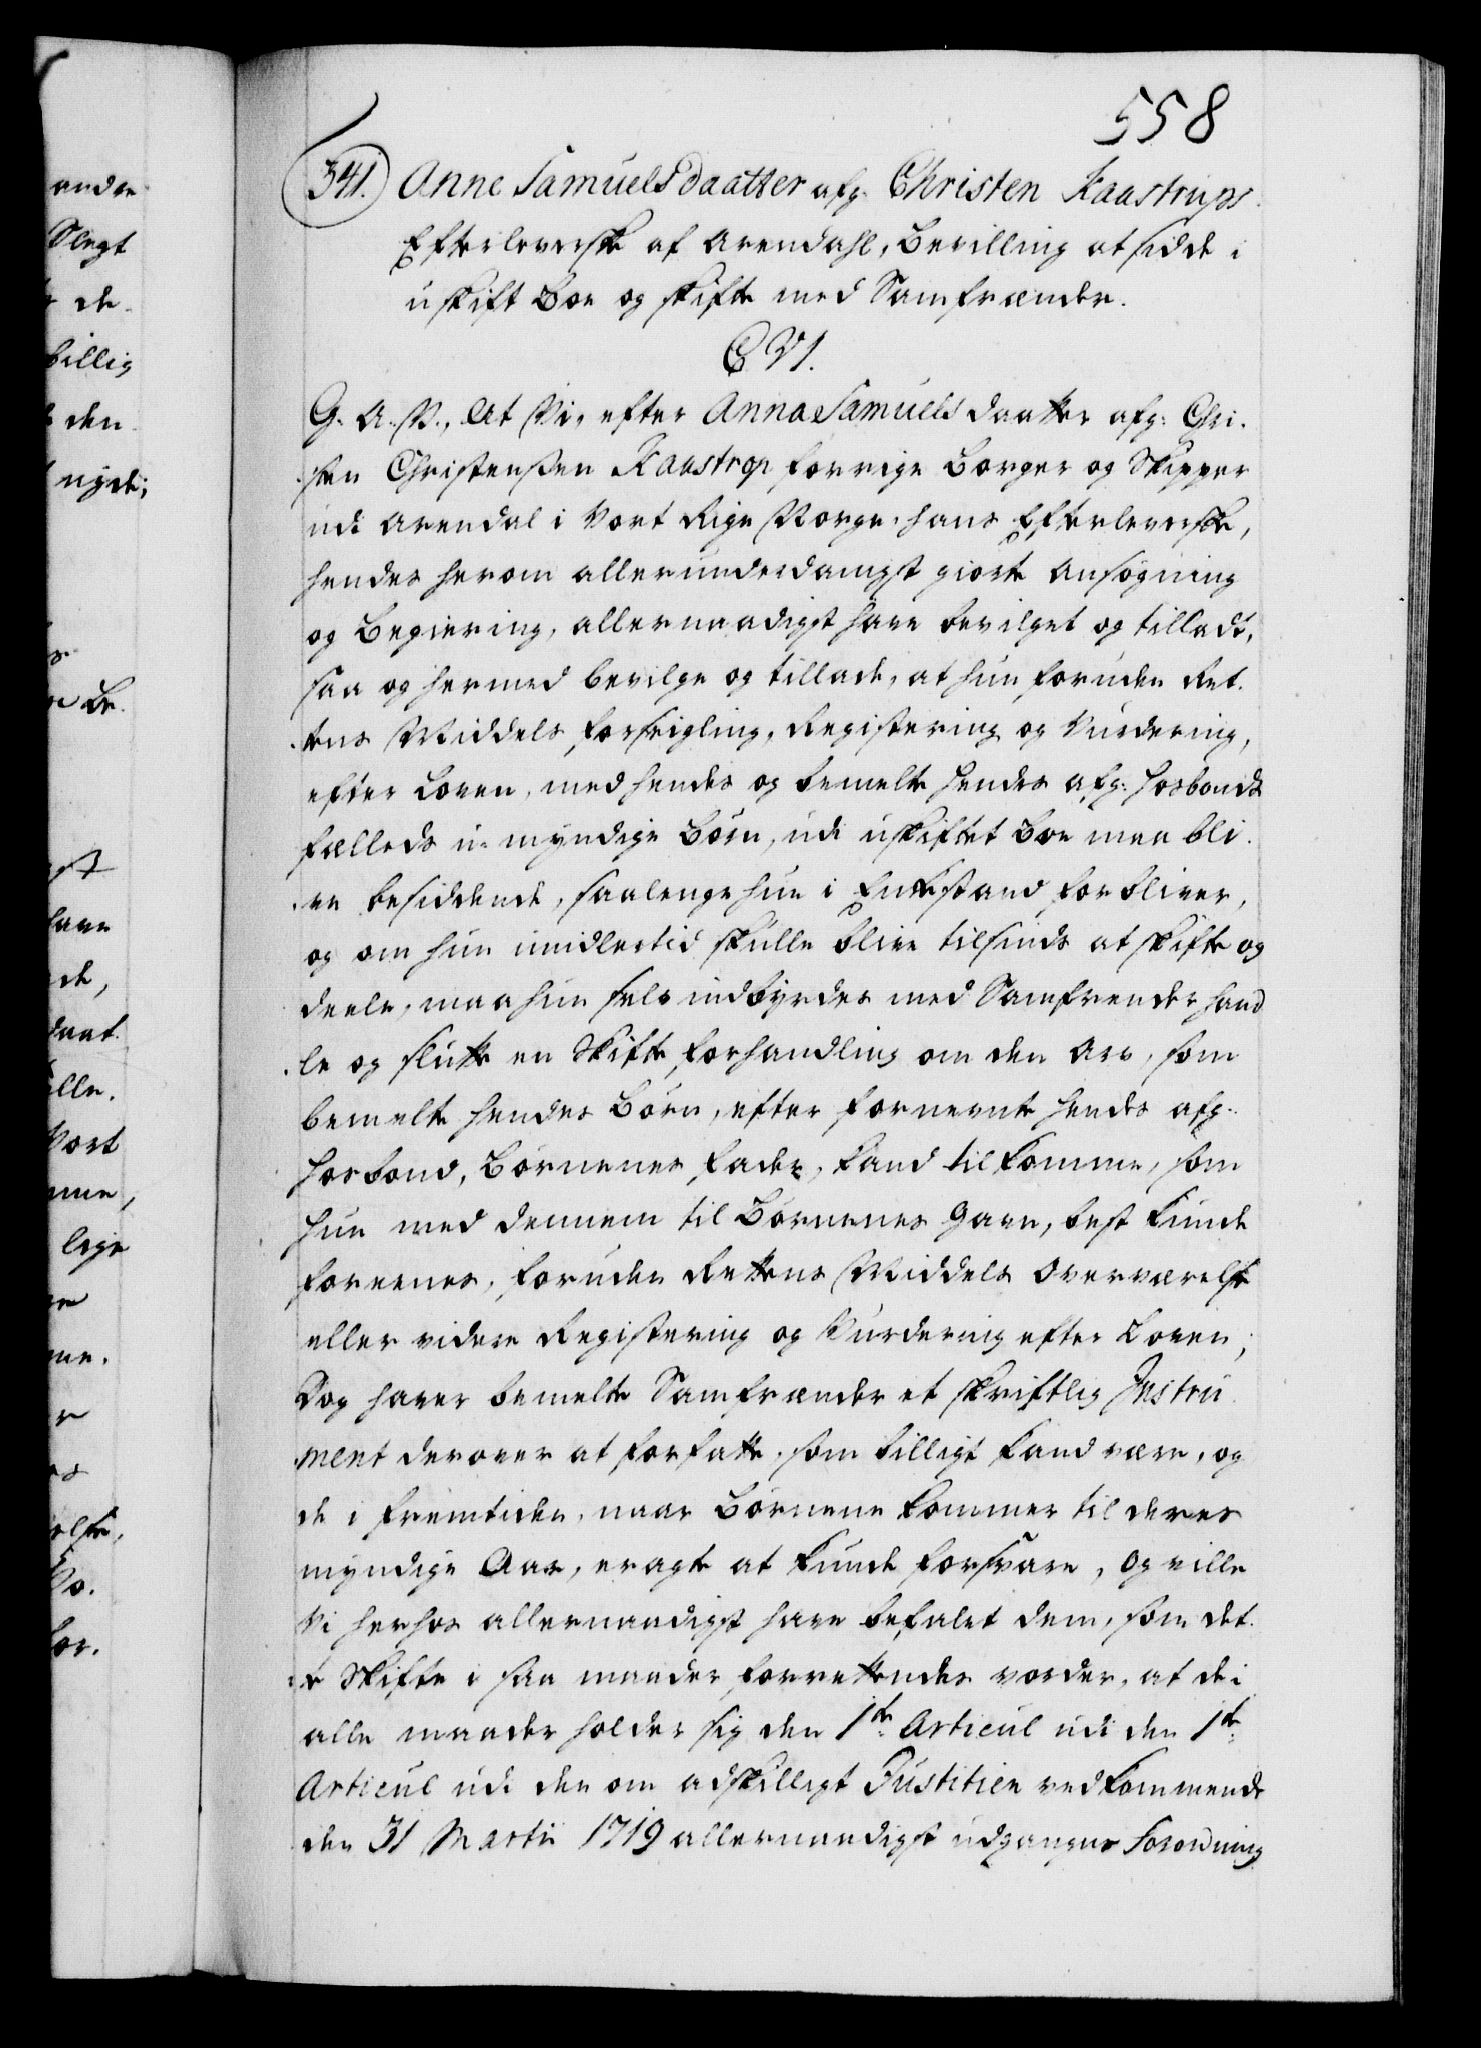 558
341. Anne Samuels daatter afg. Christen Kaastrups
Efterleverske af Arendahl, Bevilling at sidde i
uskift Boe og skifte med Samfrænder.
C VI.
G. A. V., At Vi, efter Anna Samuels daatter afg: Chri-
sten Christensen Kaastrop forrige Borger og Skipper
udi Arendal i Vort Rige Norge, hans Efterleverske,
hendes herom allerunderdanigst giorte Ansøgning
og Begiering, allernaadigst have bevilget og tilladt,
saa og hermed bevilge og tillade, at hun foruden Ret-
tens Middels forseigling, Registering og Vurdering,
efter Loven, med hendes og bemelte hendes afg: Hosbonds
fælleds u-myndige Børn, udi uskiftet Boe maa bli-
ve besiddende, saalenge hun i Enkestand forbliver,
og om hun imidlertid skulle blive tilsinds at skifte og
deele, maa hun selv indbyrdes med Samfrender hand
le og slutte en Skifte forhandling om den Arv, som
bemelte hendes Børn, efter fornevnte hendes afg.
Hosbond, Børnenes fader, kand tilkomme, som
hun med dennem til Børnenes Gavn, best kunde
foreenes, foruden Rettens Middels Overværelse
eller videre Registering og Vurdering efter Loven;
Dog haver bemelte Samfrænder et skriftlig Instru
ment derover at forfatte, som billigt kand være, og
de i fremtiden, naar Børnene kommer til deres
myndige Aar, eragte at kunde forsvare, og ville
Vi herhos allernaadigst have befalet dem, som det-
te Skifte i saa maader forrettendes vorder, at de i
alle maader holder sig den 1te Articul udi den 1te
Articul udi den om adskilligt Justitien vedkommende
den 31 Martii 1719 allernaadigst udgangne Forordning